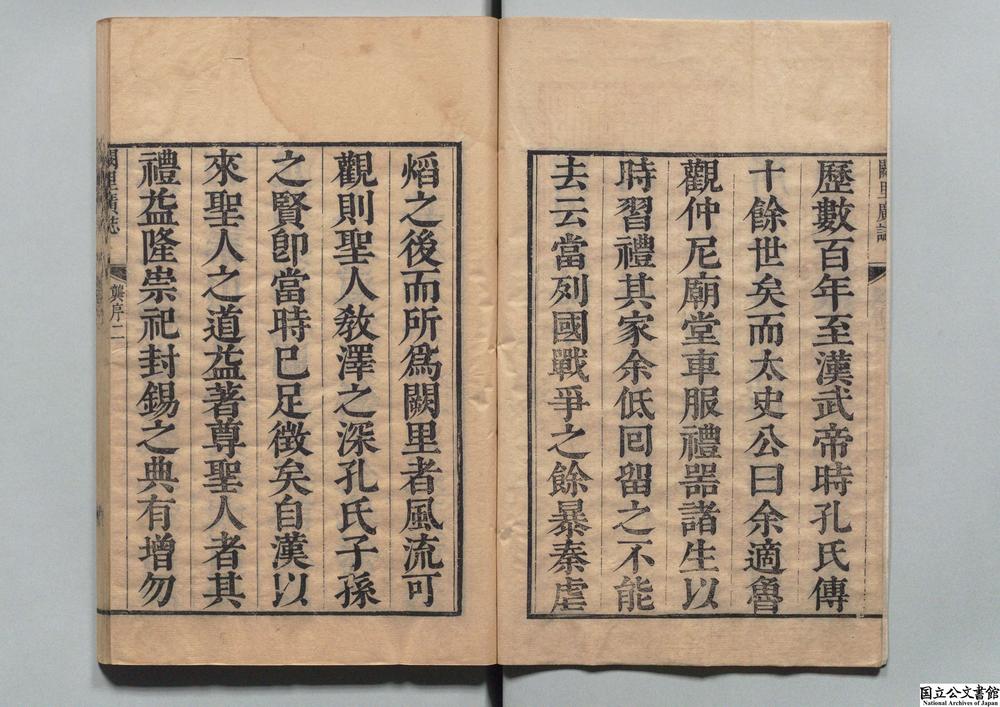 歷數百年至漢武帝時孔氏傳
十餘世矣而太史公曰余適魯
觀仲尼廟堂車服禮噐諸生以
時習禮其家余低囘畱之不能
去云當列國戰爭之餘暴秦虐
熖之後而所爲闕里者風流可
觀則聖人敎澤之深孔氏子孫
之賢卽當時已足徵矣自漢以
來聖人之道益著尊聖人者其
禮益隆崇祀封錫之典有增勿
龔序二
国立公文書館
National Archives of Japan